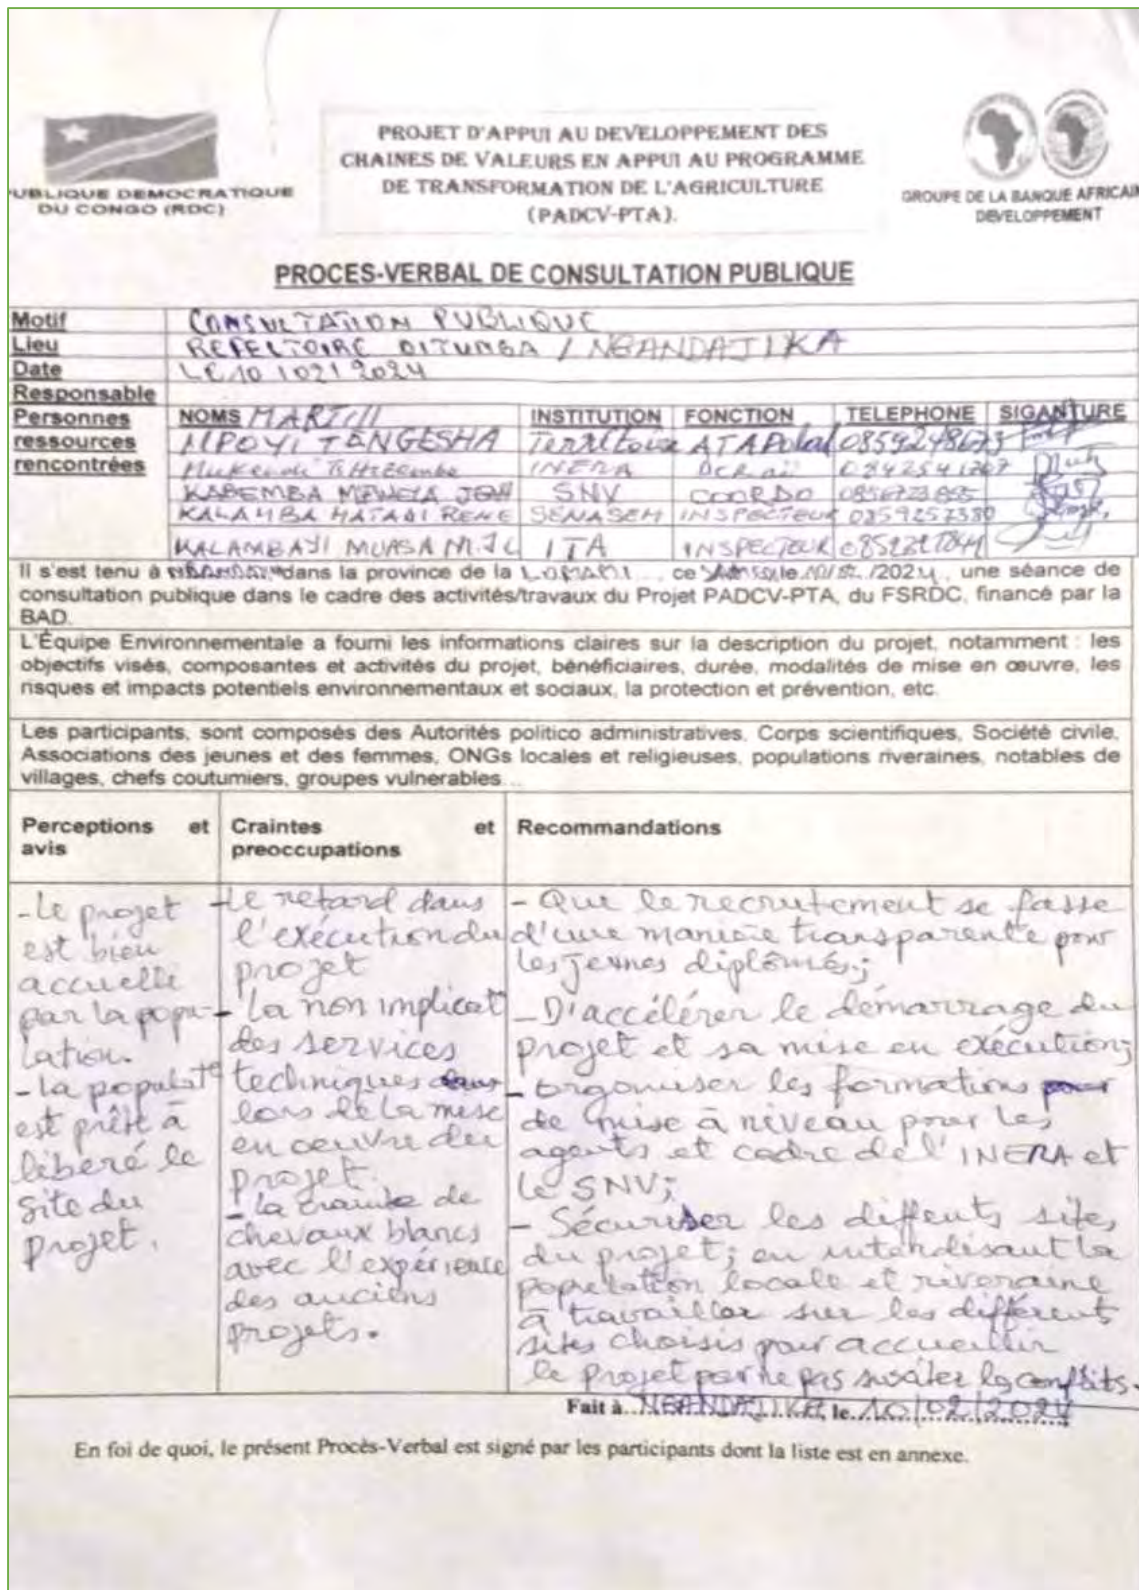 PROJET D'APPUI AU DEVELOPPEMENT DES
CHAINES DE VALEURS EN APPUI AU PROGRAMME
DE TRANSFORMATION DE L'AGRICULTURE
(PADCV-PTA).
UBLIQUE DEMOCRATIQUE
DU CONGO (RDC)
GROUPE DE LA BANQUE AFRICAIN
DEVELOPPEMENT
PROCES-VERBAL DE CONSULTATION PUBLIQUE
Motif CONSULTATION PUBLIQUE
Lieu REFECTOIRE DITUNGA / NGANDAJIKA
Date LE 10/02/2024
Responsable
Personnes ressources rencontrées
NOMS INSTITUTION FONCTION TELEPHONE SIGANTURE
MPOYI TANGESHA Territoire
INERA
KABEMBA SNV COORDO
KALAMBA MATABI RENE SENASEM INSPECTEUR 0859257380
KALAMBAYI MUASA M. ITA INSPECTEUR
Il s'est tenu à dans la province de la LOMAMI, ce le 10/02/2024, une séance de
consultation publique dans le cadre des activités/travaux du Projet PADCV-PTA, du FSRDC, financé par la
BAD.
L'Équipe Environnementale a fourni les informations claires sur la description du projet, notamment : les
objectifs visés, composantes et activités du projet, bénéficiaires, durée, modalités de mise en œuvre, les
risques et impacts potentiels environnementaux et sociaux, la protection et prévention, etc.
Les participants, sont composés des Autorités politico administratives, Corps scientifiques, Société civile,
Associations des jeunes et des femmes, ONGs locales et religieuses, populations riveraines, notables de
villages, chefs coutumiers, groupes vulnerables...
Perceptions et
avis
- Le projet
est bien
accuelle
par la popu-
lation.
- la populat°
est prêt à
libéré le
site du
projet.
Craintes et
preoccupations
- Le retard dans
l'exécution du
projet
- La non implicat
des services
techniques
lors de la mise
en oeuvre du
projet.
- la crainte de
chevaux blancs
avec l'expérience
des anciens
projets.
Recommandations
- Que le recrutement se fasse
d'une maniere transparente pour
les jeunes diplômés;
- D'accélérer le démarrage du
projet et sa mise en exécution;
- organiser les formations
de mise à niveau pour les
agents et cadre de l'INERA et
le SNV;
- Sécuriser les diffents sites
du projet; en interdisant la
population locale et riveraine
à travailler sur les différents
sites choisis pour accueillir
le projet ne pas les conflits.
Fait à NGANDAJIKA, le 10/02/2024
En foi de quoi, le présent Procès-Verbal est signé par les participants dont la liste est en annexe.